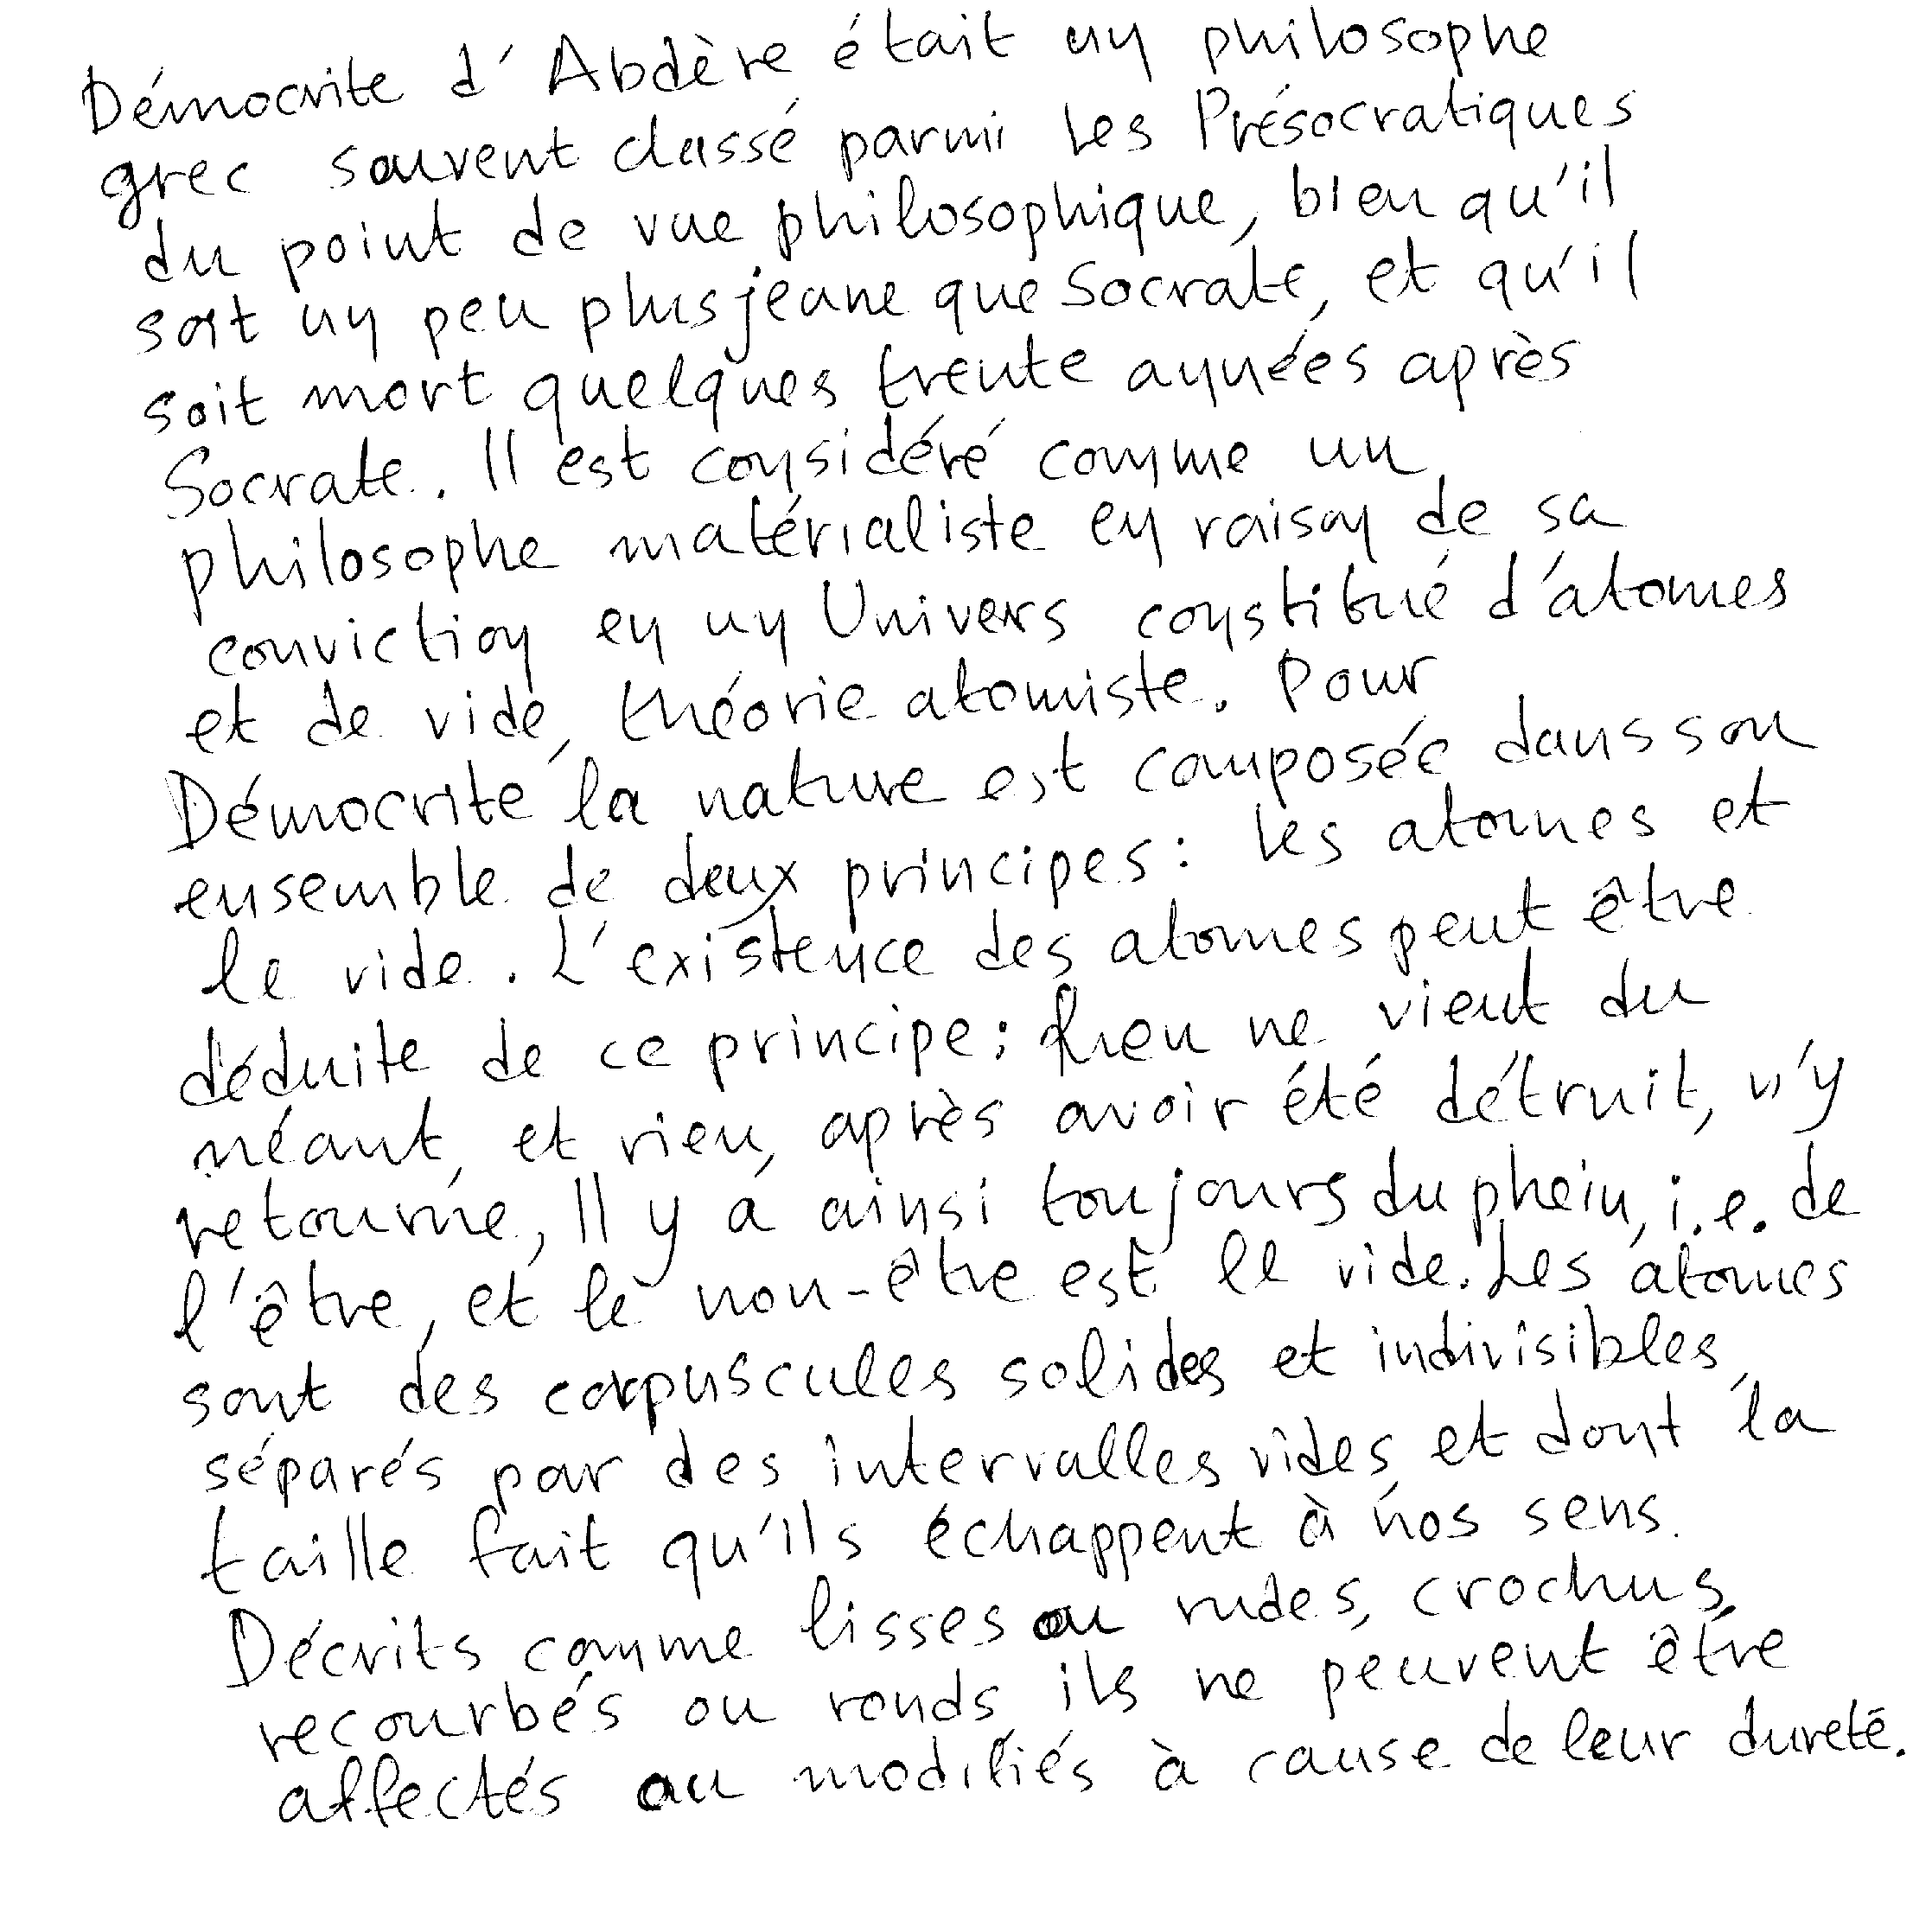 Démocrite d'Abdère était un philosophe
grec souvent classé parmi les Présocratiques
du point de vue philosophique, bien qu'il
soit un peu plus jeune que Socrate, et qu'il
soit mort quelques trente années après
Socrate. Il est considéré comme un
philosophe matérialiste en raison de sa
conviction en un Univers constitué d'atomes
et de vide, théorie atomiste. Pour
Démocrite la nature est composée dans son
ensemble de deux principes : les atomes et
le vide. L'existence des atomes peut être
déduite de ce principe : Rien ne vient du
néant, et rien, après avoir été détruit, n'y
retourne, Il y a ainsi toujours du plein, i.e. de
l'être, et le non-être est le vide. Les atomes
sont des corpuscules solides et indivisibles,
séparés par des intervalles vides, et dont la
taille fait qu'ils échappent à nos sens.
Décrits comme lisses ou rudes, crochus,
recourbés ou ronds, ils ne peuvent être
affectés ou modifiés à cause de leur dureté.